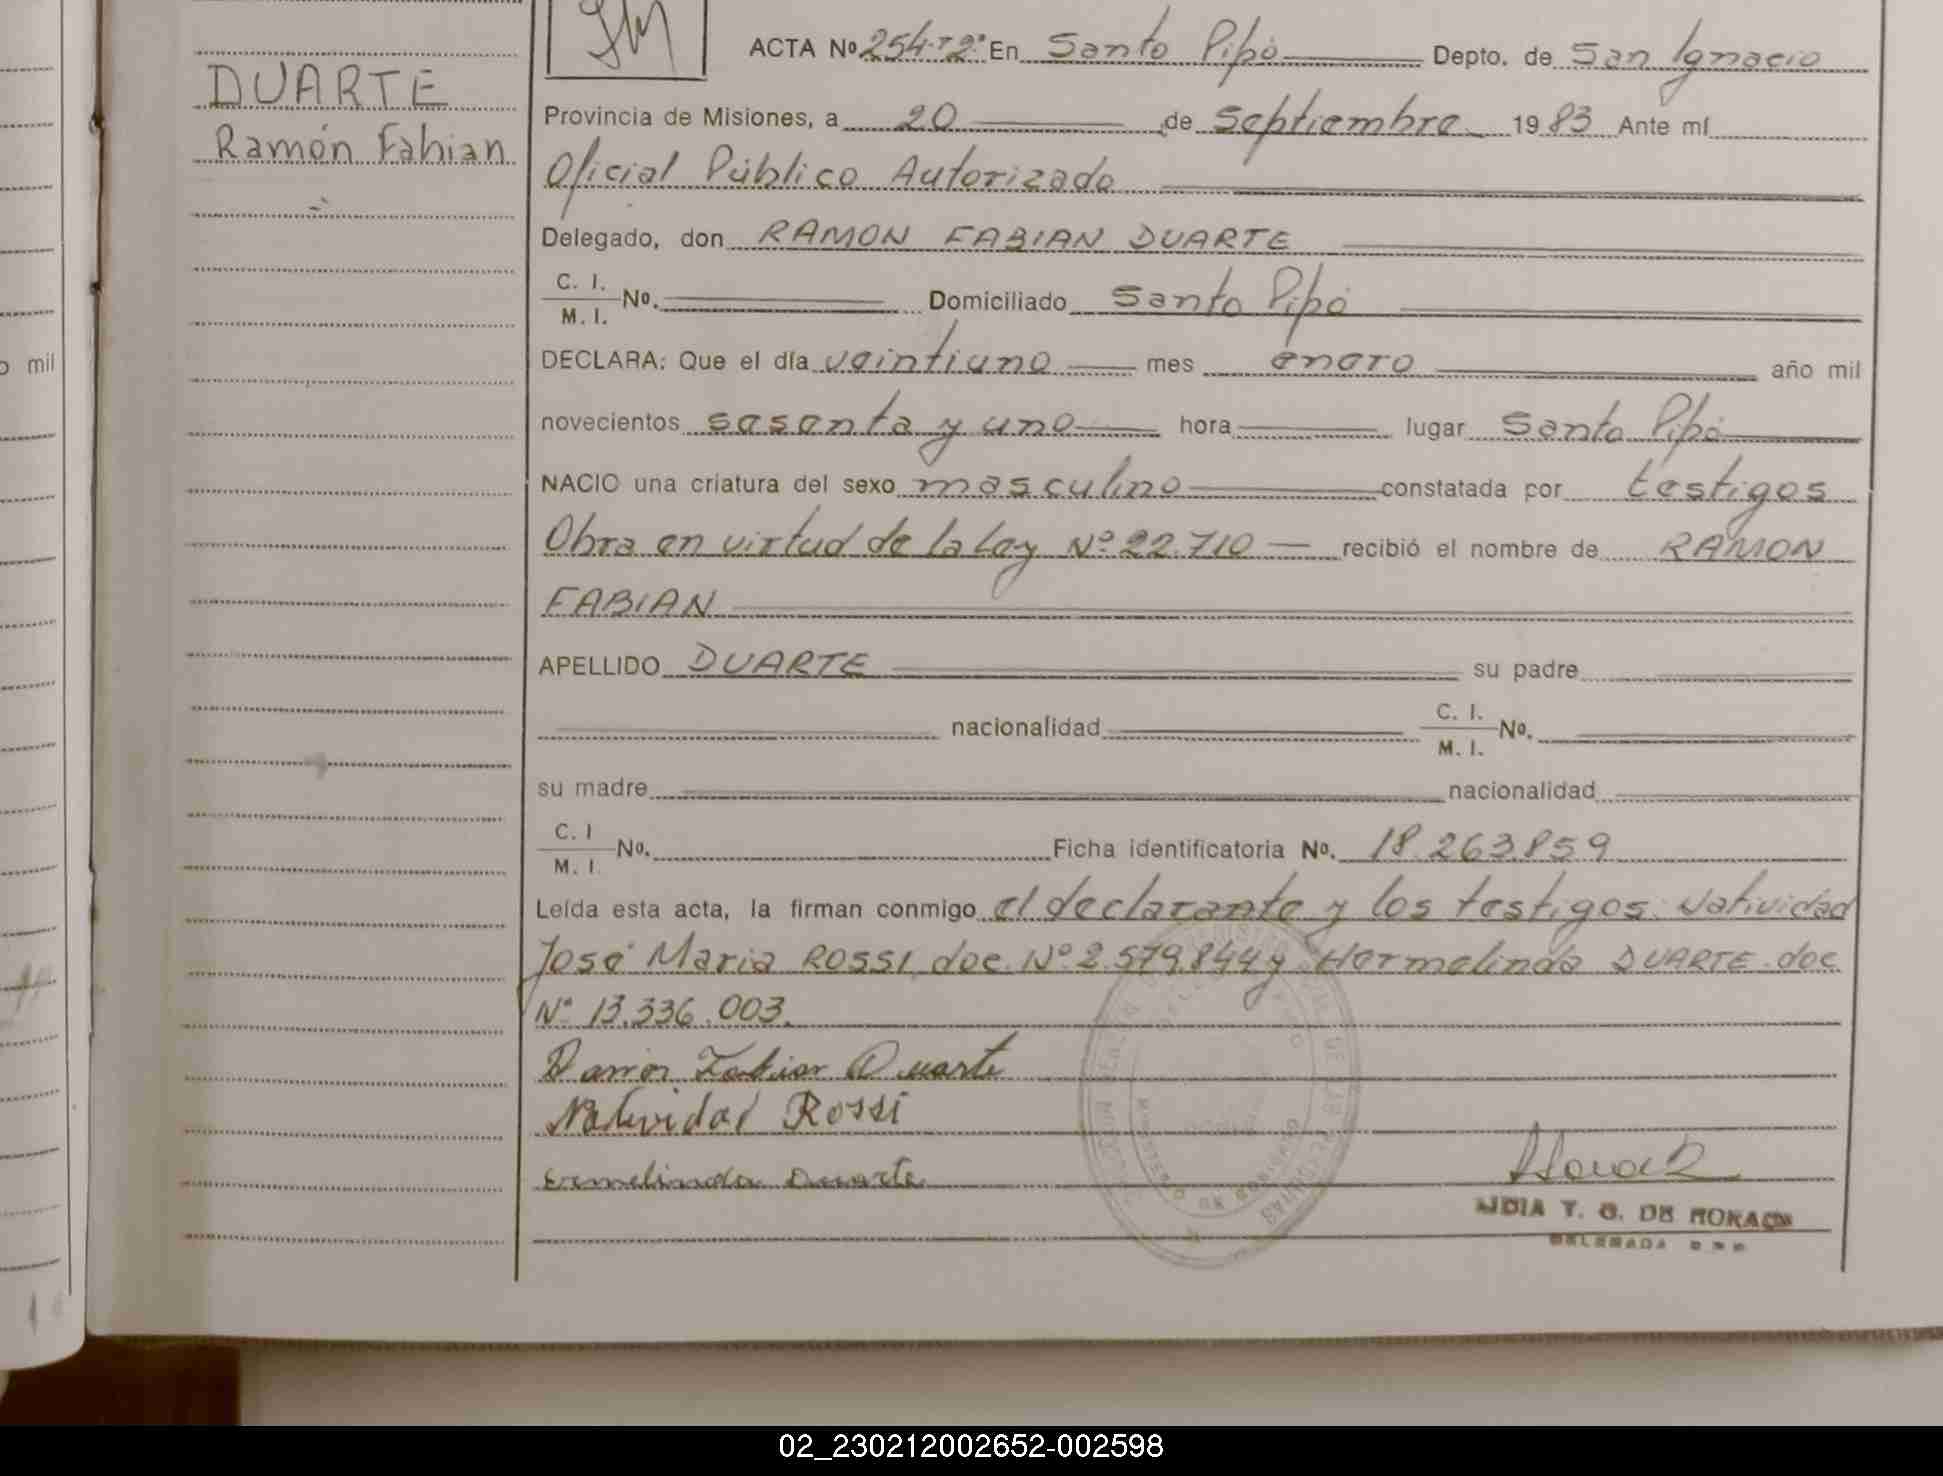 DUARTE
Ramón Fabian
ACTA Nº 254-T2º En Santo Pipó Depto. de San Ignacio
Provincia de Misiones, a 20 de Septiembre 1983 Ante mí
Oficial Público Autorizado
Delegado, don RAMON FABIAN DUARTE
C. I.
M. I. Nº. Domiciliado Santo Pipó
DECLARA: Que el día veintiuno mes enero año mil
novecientos sesenta y uno hora lugar Santo Pipó
NACIO una criatura del sexo masculino constatada por testigos
Obra en virtud de la Ley Nº 22.710 recibió el nombre de RAMON
FABIAN
APELLIDO DUARTE su padre
nacionalidad C. I.
M. I. Nº.
su madre nacionalidad
C. I
M. I. Nº. Ficha identificatoria Nº. 18.263.859
Leída esta acta, la firman conmigo el declarante y los testigos Natividad
José Maria ROSSI doc. Nº 2.579.844 y Hermelinda DUARTE doc
Nº 13.336.003.
Ramón Fabian Duarte
Natividad Rossi
Ermelinda Duarte
LIDIA T. G. DE HORACK
DELEGADA
o mil
02_230212002652-002598